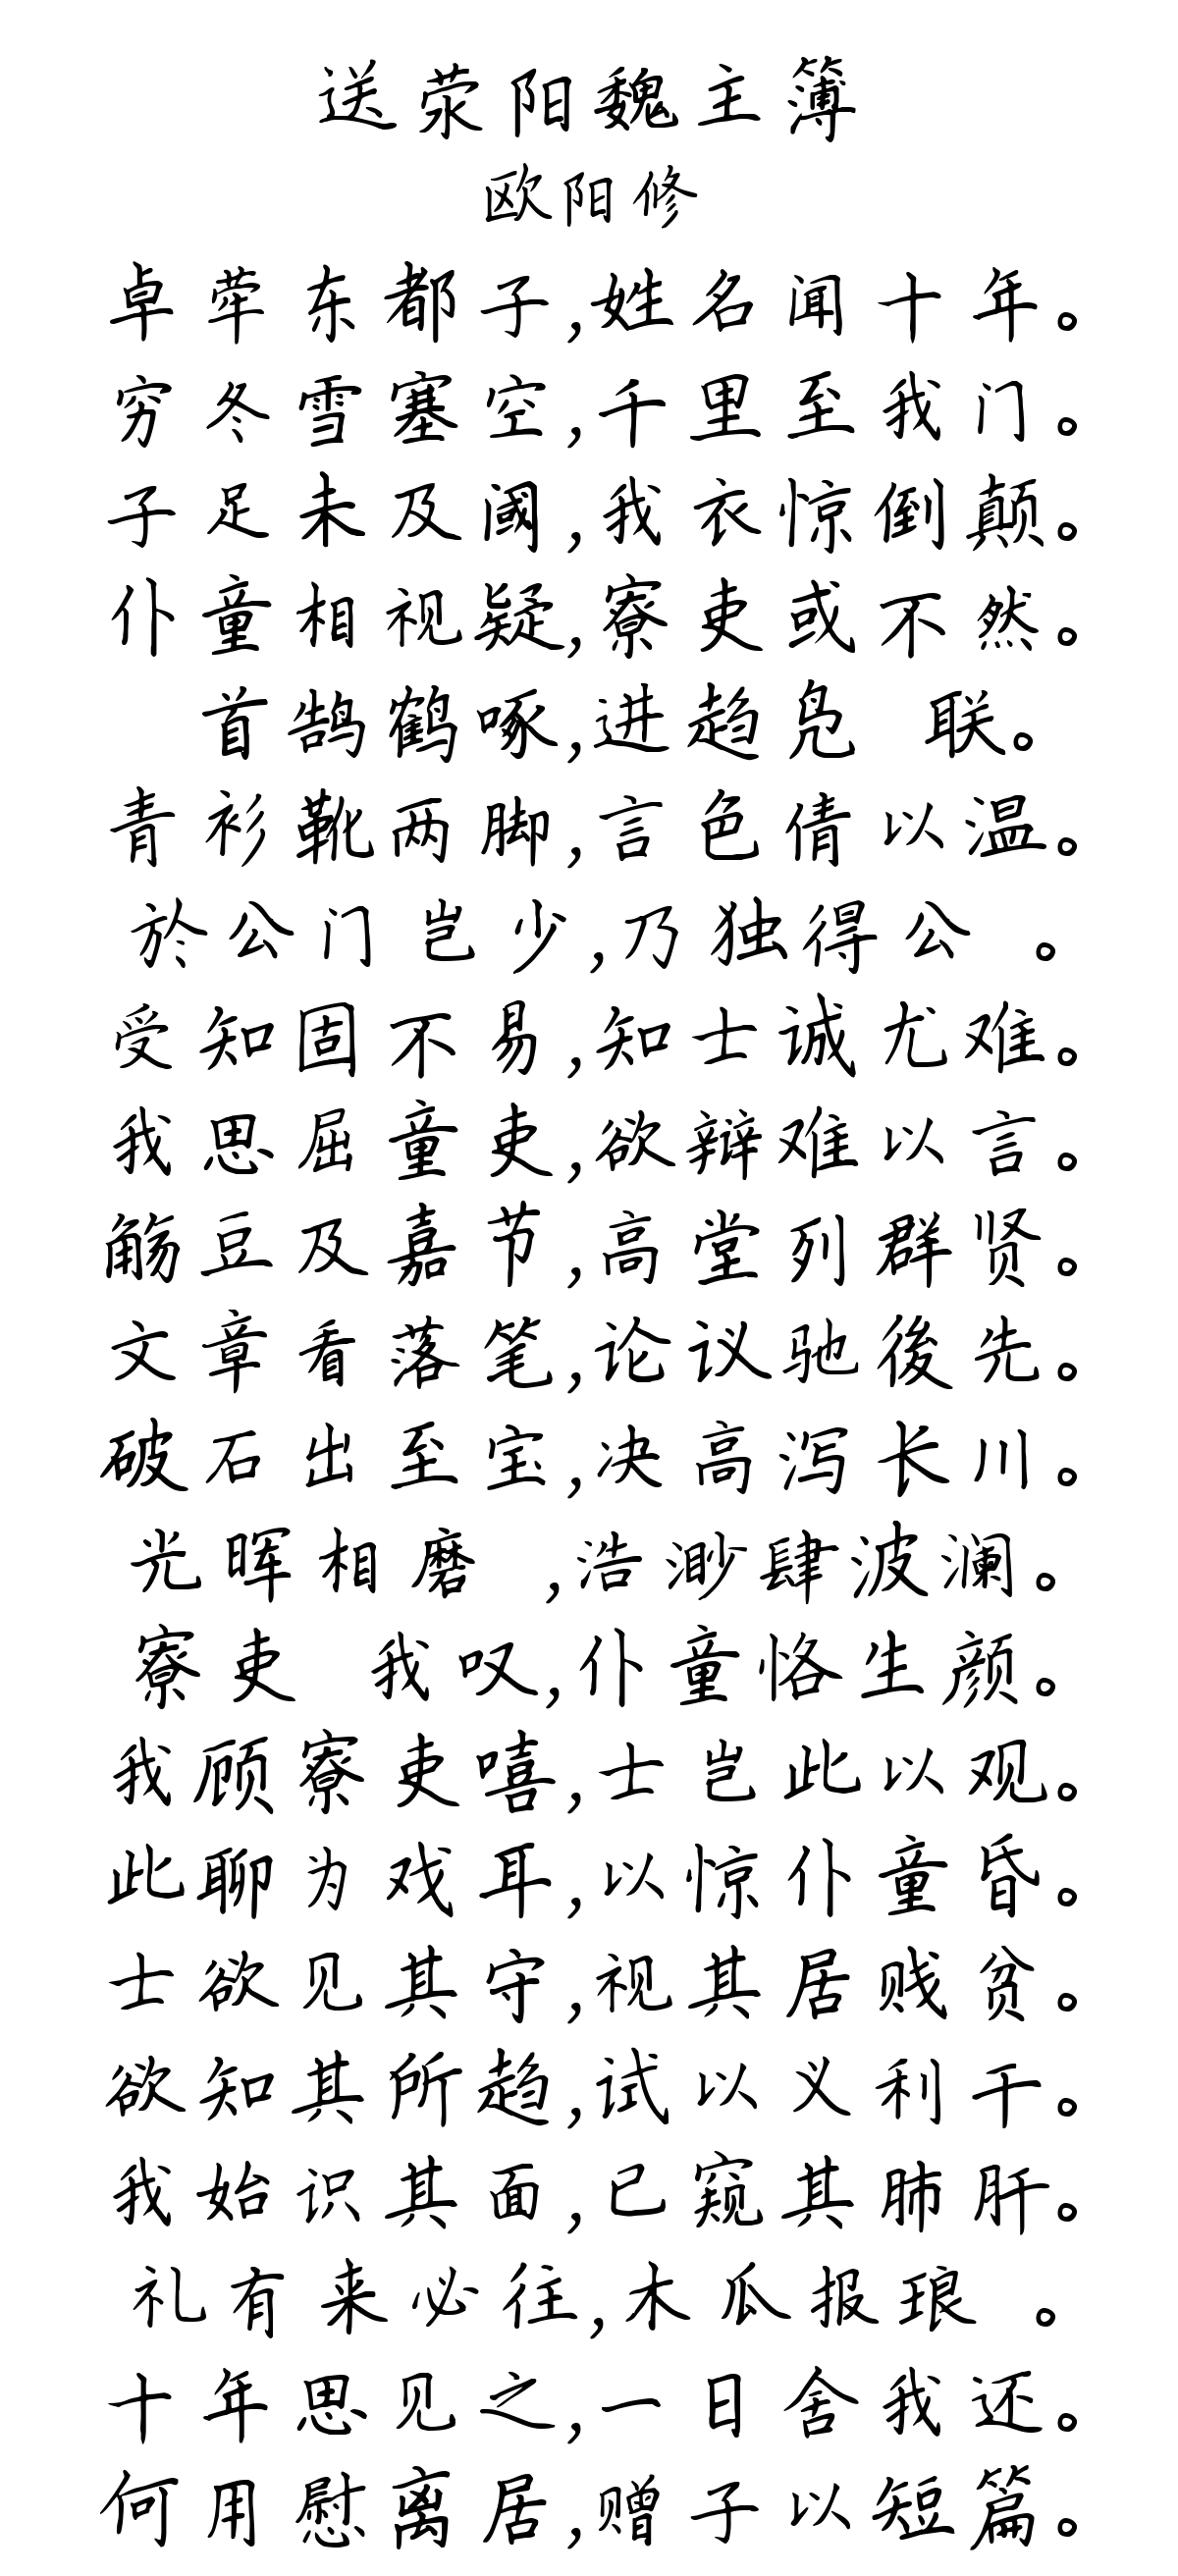 送荥阳魏主簿
欧阳修
卓荦东都子,姓名闻十年。
穷冬雪塞空,千里至我门。
子足未及阈,我衣惊倒颠。
仆童相视疑,寮吏或不然。
首鹄鹤啄,进趋凫 联。
青衫靴两脚,言色倩以温。
於公门岂少,乃独得公 。
受知固不易,知士诚尤难。
我思屈童吏,欲辩难以言。
觞豆及嘉节,高堂列群贤。
文章看落笔,论议驰後先。
破石出至宝,决高泻长川。
光晖相磨 ,浩渺肆波澜。
寮吏 我叹,仆童恪生颜。
我顾寮吏嘻,士岂此以观。
此聊为戏耳,以惊仆童昏。
士欲见其守,视其居贱贫。
欲知其所趋,试以义利干。
我始识其面,已窥其肺肝。
礼有来必往,木瓜报琅 。
十年思见之,一日舍我还。
何用慰离居,赠子以短篇。